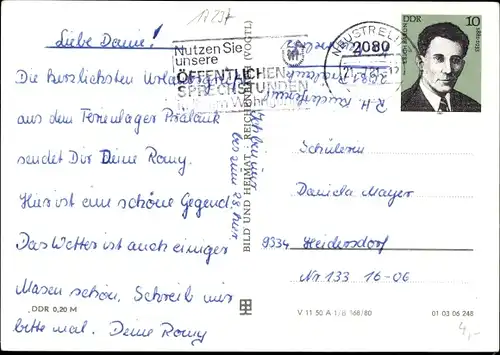 12237
Liebe Danie!
Die herzlichsten Urlaubsgrüße
aus dem Ferienlager Prälank
sendet Dir Deine Romy.
Hier ist eine schöne Gegend.
Das Wetter ist auch einiger
Masen schön. Schreib mir
bitte mal. Deine Romy
DDR 0,20 M
Ich bin
bis zum hier
BILD UND HEIMAT REICHENBACH (VOGTL)
Nutzen Sie
unsere
ÖFFENTLICHEN
SPRECHSTUNDEN
NEUSTRELITZ
2080
DDR 10
Schülerin
Daniela Mayer
9334 Heidersdorf
Nr 133 16-06
V 11 50 A 1/B 168/80
01 03 06 248
4,-